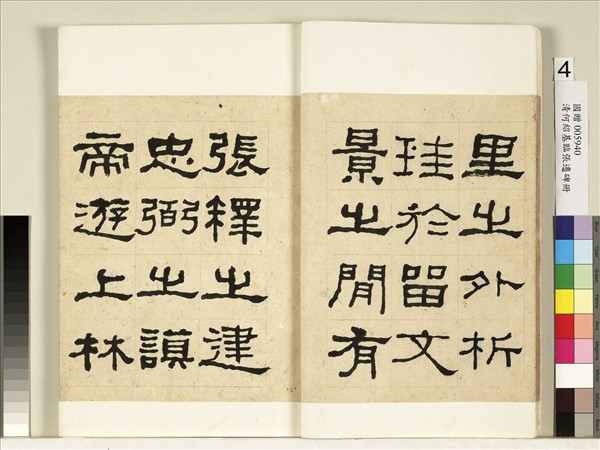 里之外析
珪於留文
景之閒有
張釋之建
忠弼之謨
帝遊上林
4
國贈 005940
清何紹基臨張遷碑冊